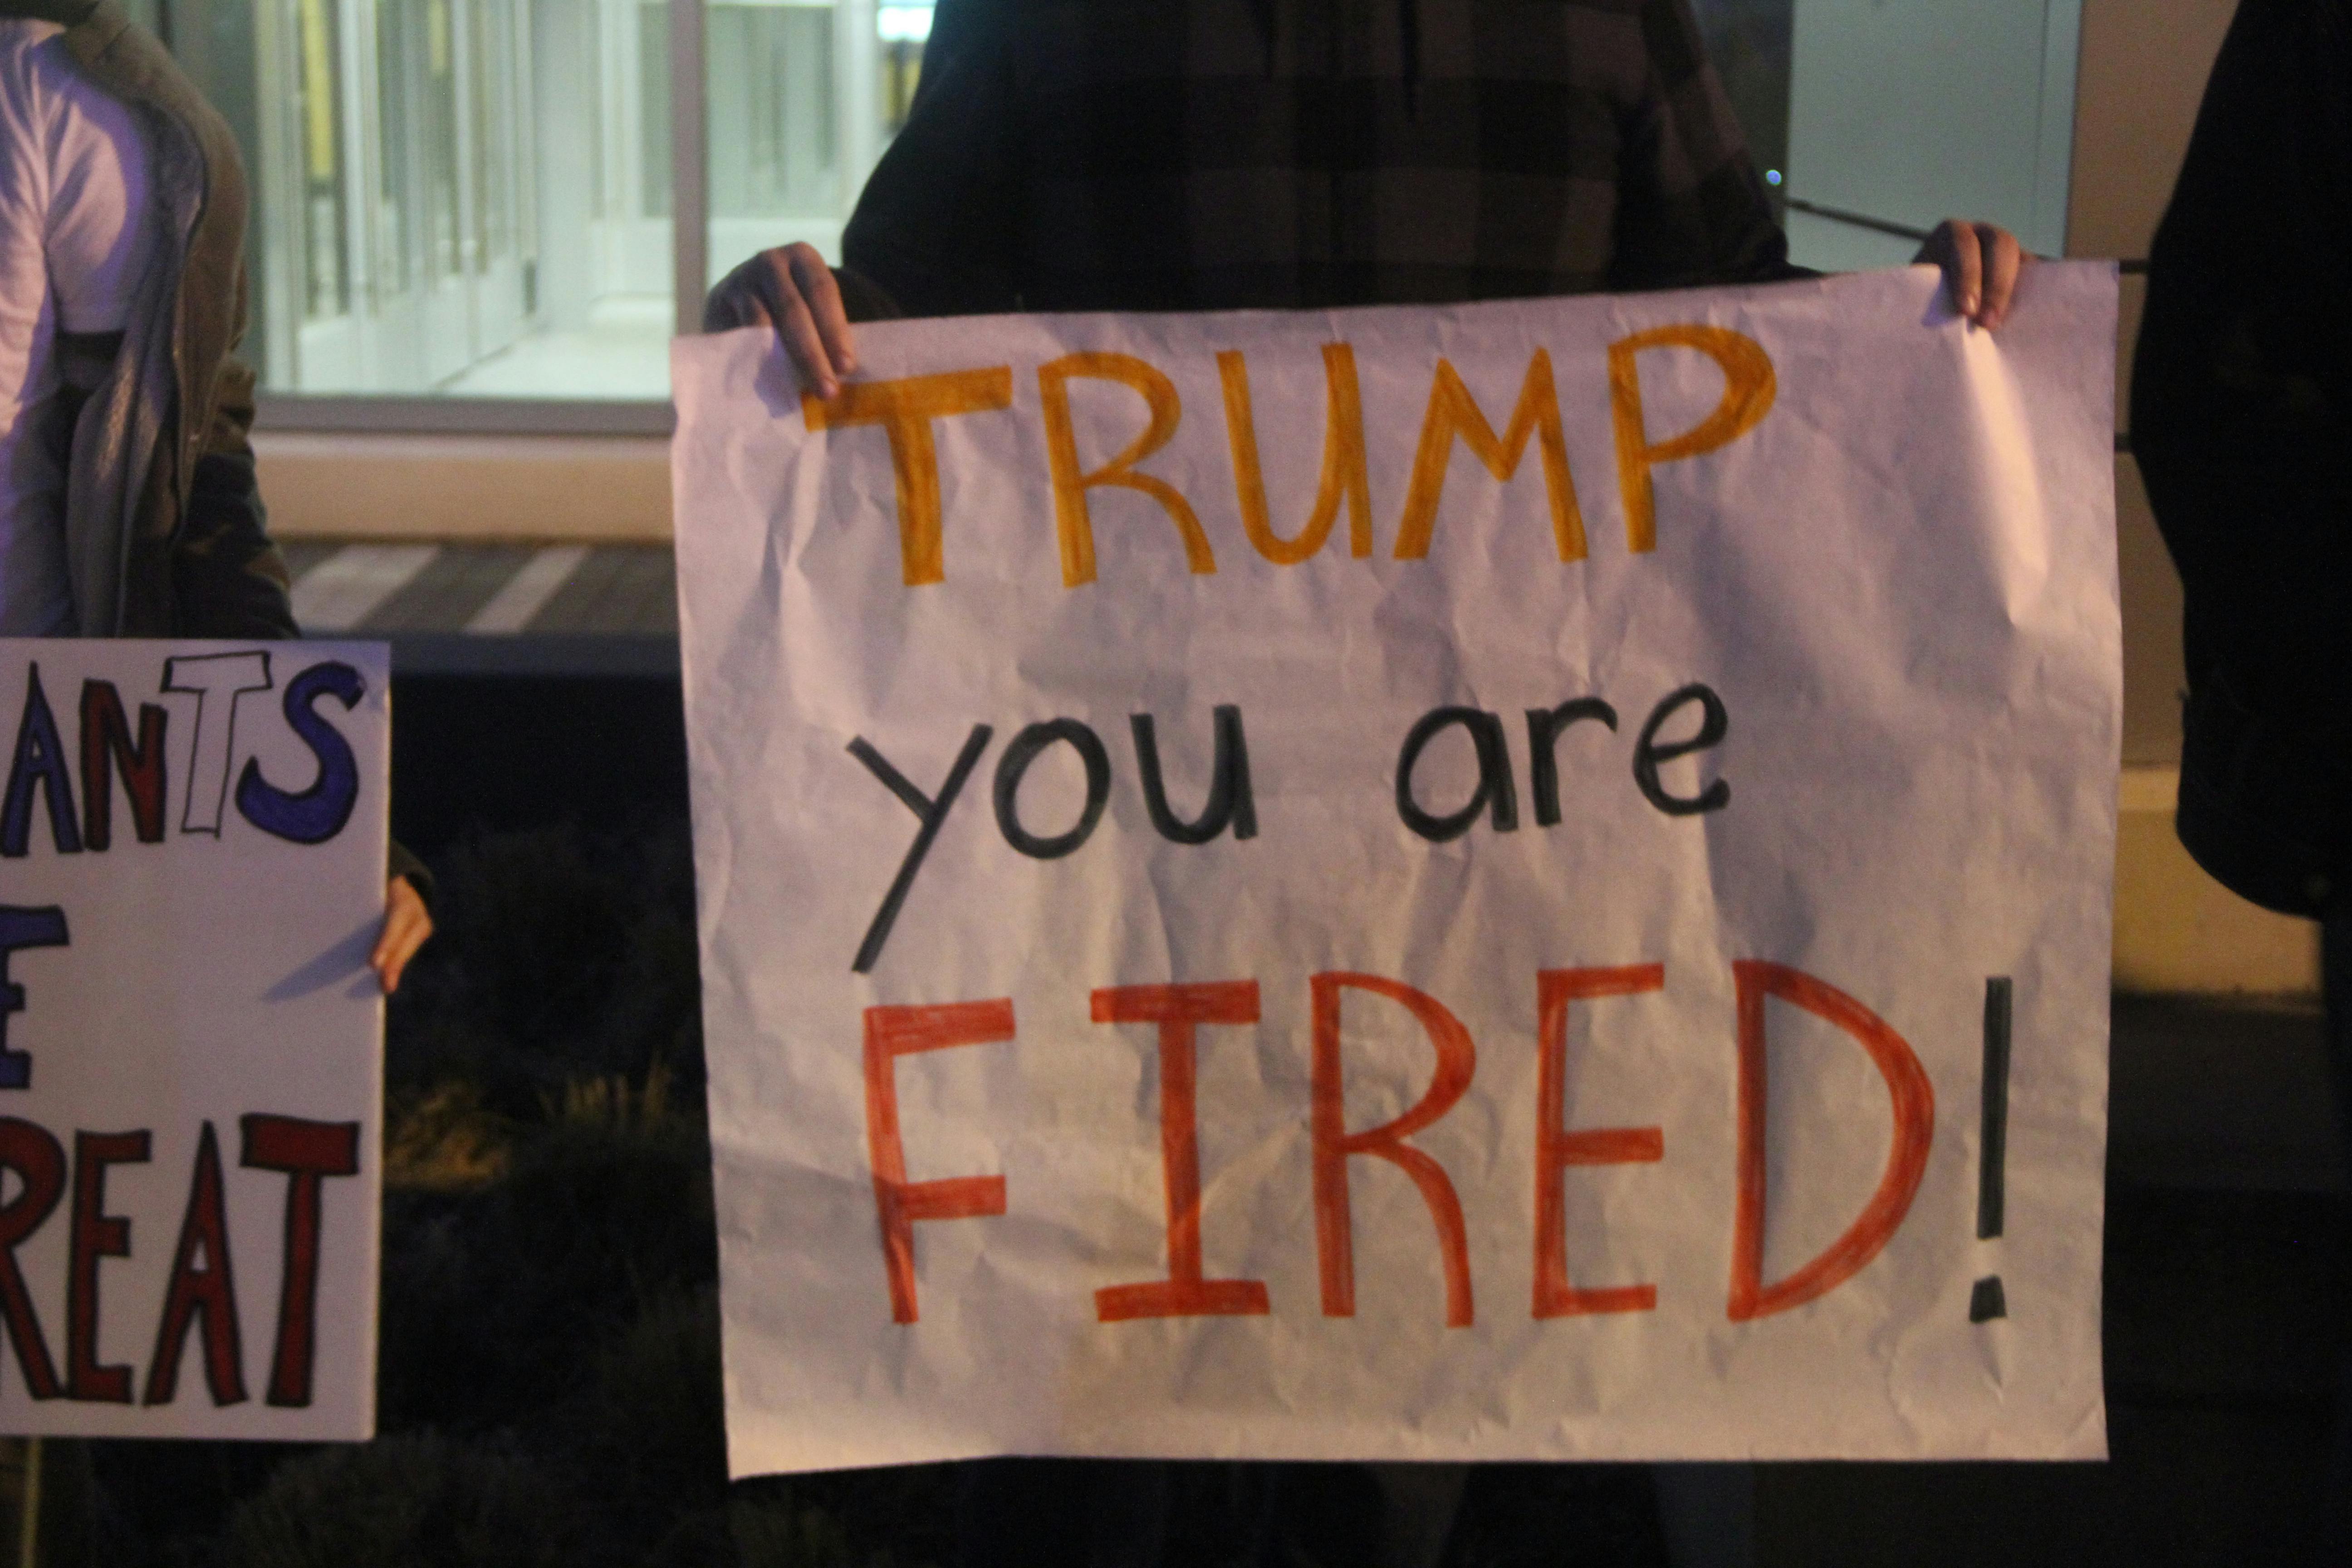 TRUMP
you are
FIRED!
ANTS
E
REAT